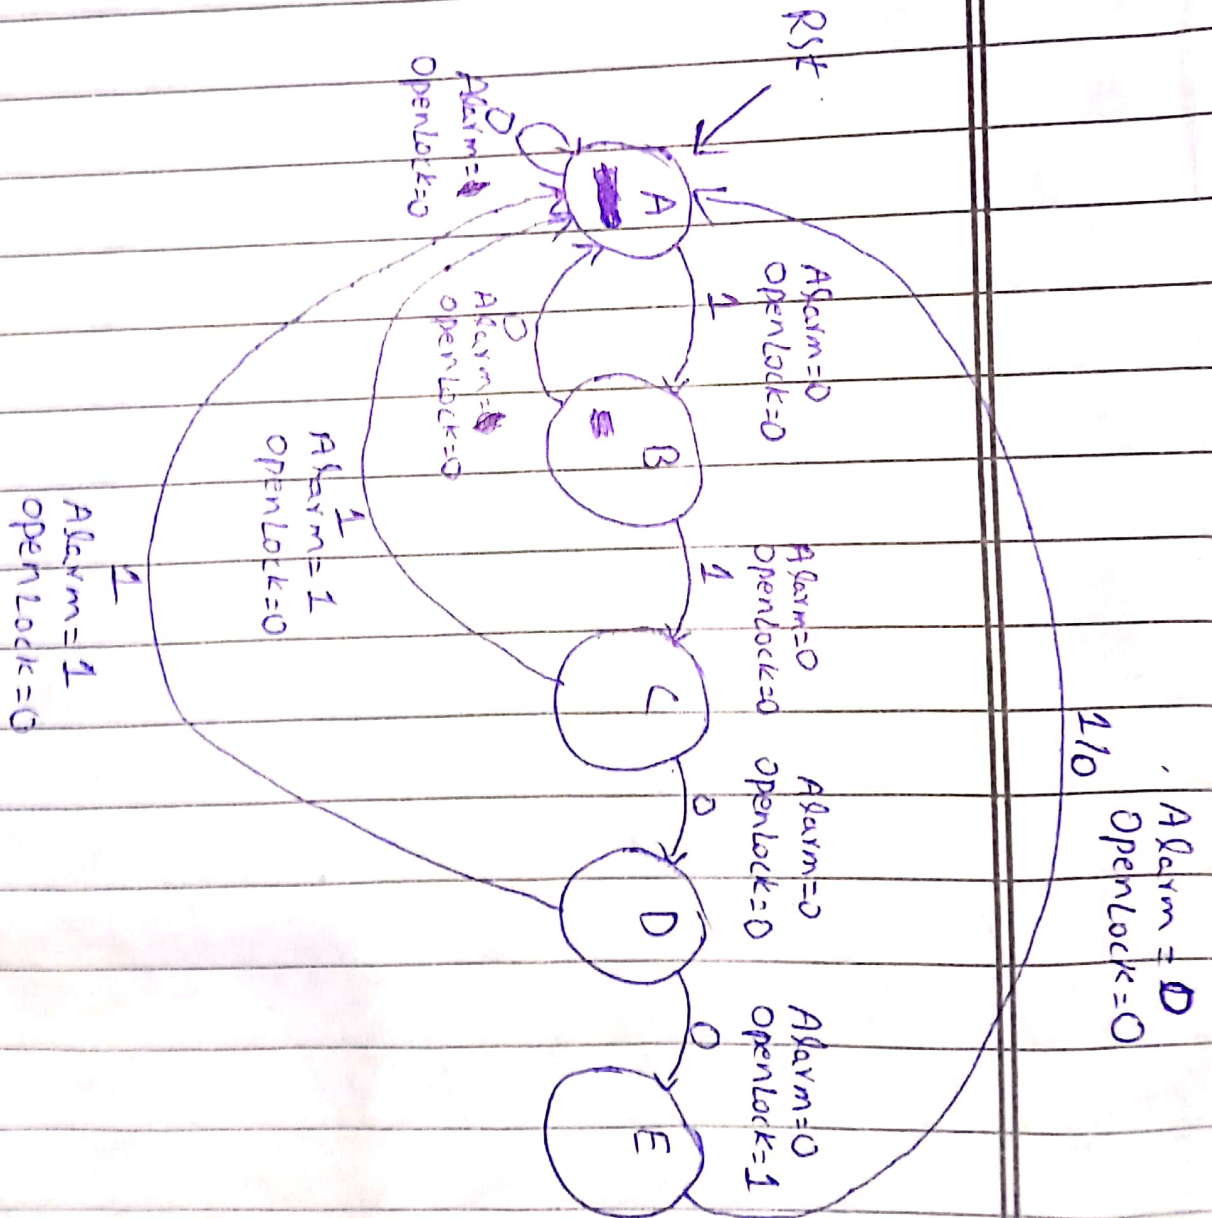 Rst
1/0
Alarm=0
OpenLock=0
Alarm=0
OpenLock=0
1
Alarm=0
OpenLock=0
1
Alarm=0
OpenLock=0
0
Alarm=0
OpenLock=1
0
A
B
C
D
E
0
Alarm=
OpenLock=0
0
Alarm=
OpenLock=0
1
Alarm=1
OpenLock=0
1
Alarm=1
OpenLock=0